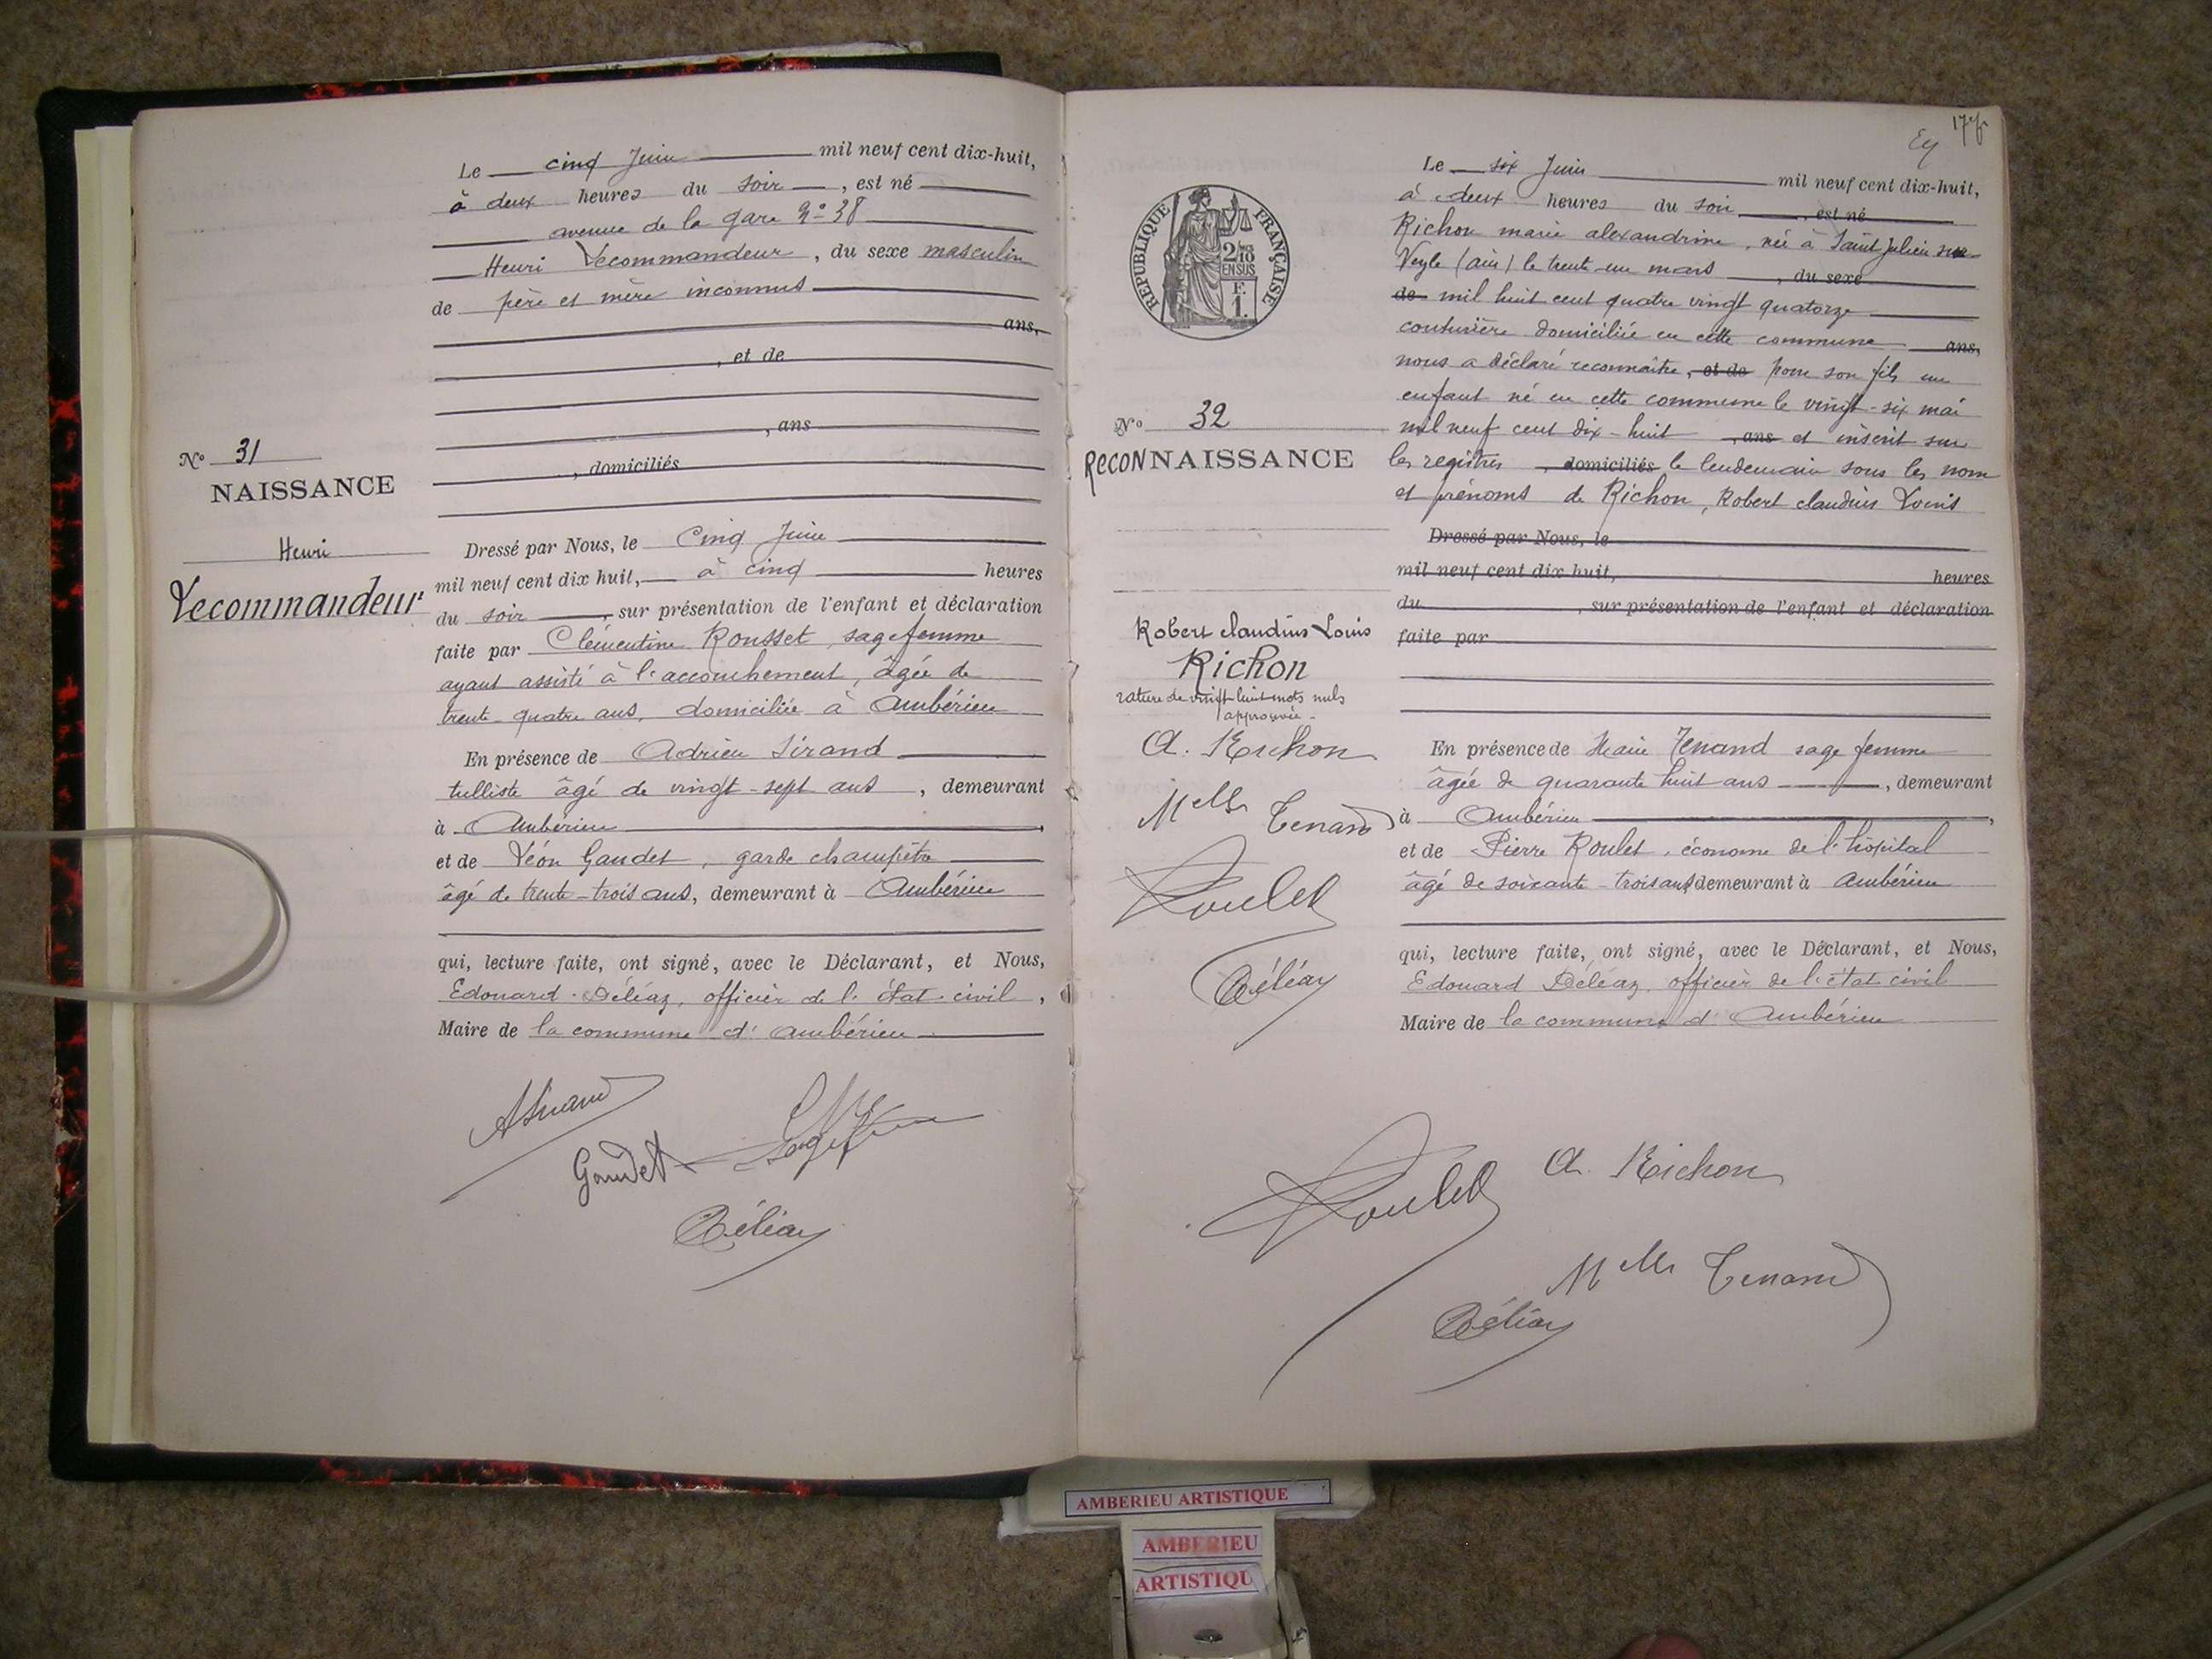 Le cinq Juin mil neuf cent dix-huit,
à deux heures du soir, est né
avenue de la gare No 38
Henri Lecommandeur, du sexe masculin
de père et mère inconnus
ans,
, et de
, ans
, domiciliés
No 31
NAISSANCE
Henri
Lecommandeur
Dressé par Nous, le Cinq Juin
mil neuf cent dix huit, à cinq heures
du soir, sur présentation de l'enfant et déclaration
faite par Clémentine Rousset, sage femme
ayant assisté à l'accouchement, âgée de
trente-quatre ans, domiciliée à Ambérieu
En présence de Adrien Sirand
tulliste âgé de vingt-sept ans, demeurant
à Ambérieu,
et de Léon Gaudet, garde champêtre
âgé de trente-trois ans, demeurant à Ambérieu
qui, lecture faite, ont signé, avec le Déclarant, et Nous,
Edouard Déléaz, officier de l'état civil,
Maire de la commune d'Ambérieu
ASirand
Gaudet
Déléaz
Le six Juin mil neuf cent dix-huit,
à deux heures du soir, est né
Richon marie alexandrine, née à Saint Julien sur
Veyle (ain) le trente un mars, du sexe
de mil huit cent quatre vingt quatorze
couturière domiciliée en cette commune ans,
nous a déclaré reconnaître, et de pour son fils un
enfant né en cette commune le vingt-six mai
mil neuf cent dix-huit, ans et inscrit sur
les registres, domiciliés le lendemain sous les nom
et prénoms de Richon, Robert claudius Louis
REPUBLIQUE FRANÇAISE
2/10
EN SUS
F.
1.
No 32
RECONNAISSANCE
Dressé par Nous, le
mil neuf cent dix huit, heures
du, sur présentation de l'enfant et déclaration
faite par
Robert claudius Louis
Richon
rature de vingt huit mots nuls
approuvée
A. Richon
Melle Tenand
Roulet
Déléaz
En présence de Marie Tenand sage femme
âgée de quarante huit ans, demeurant
à Ambérieu,
et de Pierre Roulet, économe de l'hôpital
âgé de soixante-trois ans, demeurant à Ambérieu
qui, lecture faite, ont signé, avec le Déclarant, et Nous,
Edouard Déléaz, officier de l'état civil
Maire de la commune d'Ambérieu
Roulet
A. Richon
Melle Tenand
Déléaz
AMBERIEU ARTISTIQUE
AMBERIEU
ARTISTIQU